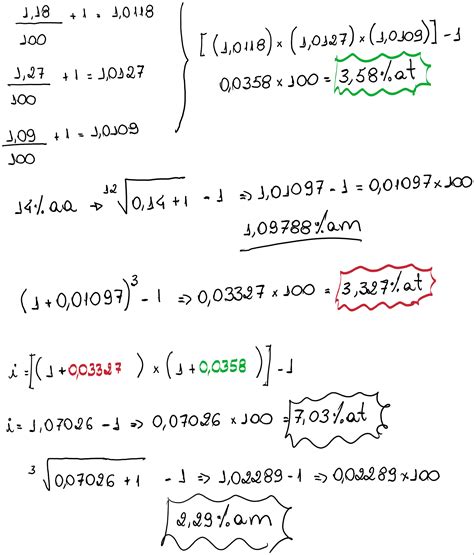 1,18/100 + 1 = 1,0118
1,27/100 + 1 = 1,0127
1,09/100 + 1 = 1,0109
[(1,0118) × (1,0127) × (1,0109)] - 1
0,0358 × 100 = 3,58% at
14% aa → ¹²√(0,14 + 1) - 1 => 1,01097 - 1 = 0,01097 × 100
1,09788% am
(1 + 0,01097)³ - 1 => 0,03327 × 100 = 3,327% at
i = [(1 + 0,03327) × (1 + 0,0358)] - 1
i = 1,07026 - 1 => 0,07026 × 100 = 7,03% at
³√(0,07026 + 1) - 1 => 1,02289 - 1 => 0,02289 × 100
2,29% am